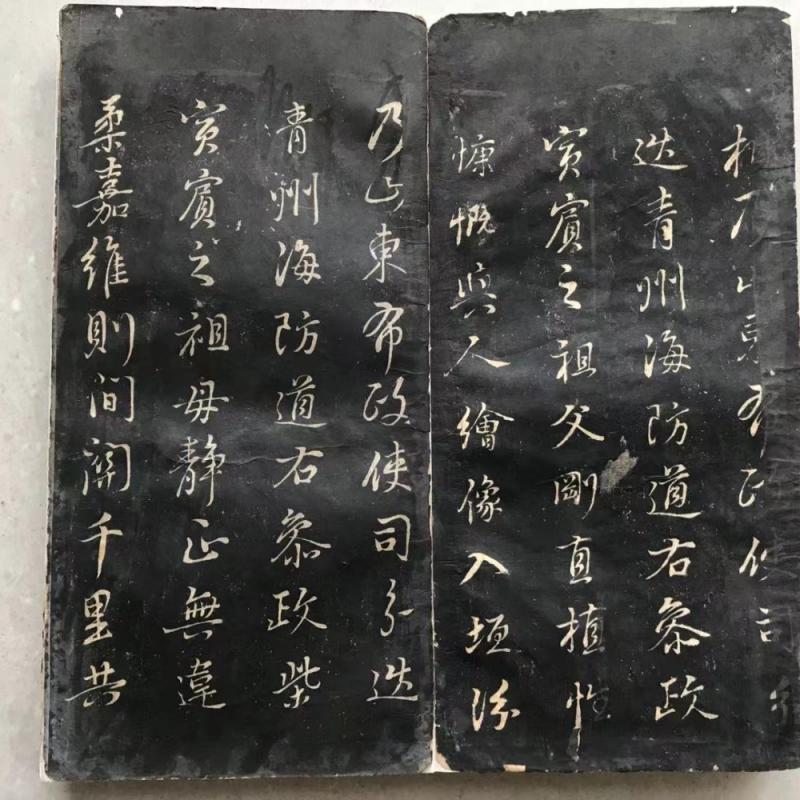 乃山東布政使司分
巡青州海防道右叅政
寅賓之祖父剛直植性
慷慨與人繪像入垣
乃山東布政使司分巡
青州海防道右叅政柴
寅賓之祖母靜正無違
柔嘉維則間關千里共